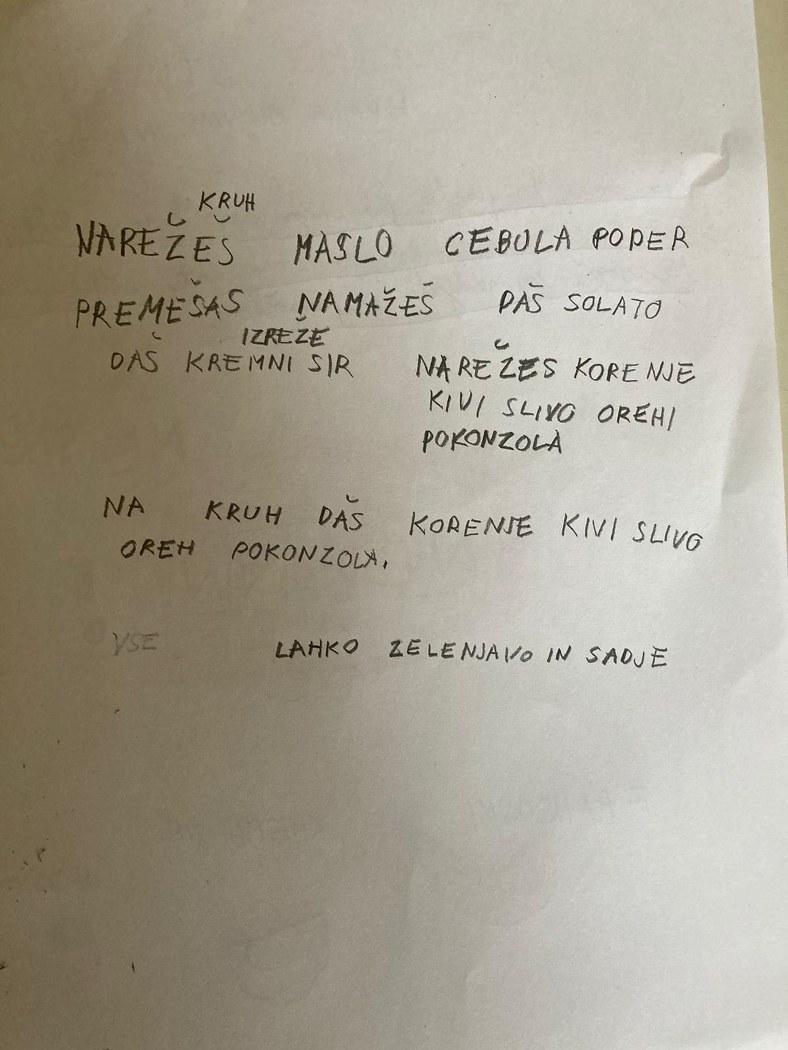 KRUH
NAREŽEŠ MASLO CEBULA POPER
PREMEŠAS NAMAŽEŠ DAŠ SOLATO
IZREŽE
DAŠ KREMNI SIR NAREŽES KORENJE
KIVI SLIVO OREHI
POKONZOLA
NA KRUH DAŠ KORENJE KIVI SLIVO
OREH POKONZOLA.
VSE LAHKO ZELENJAVO IN SADJE